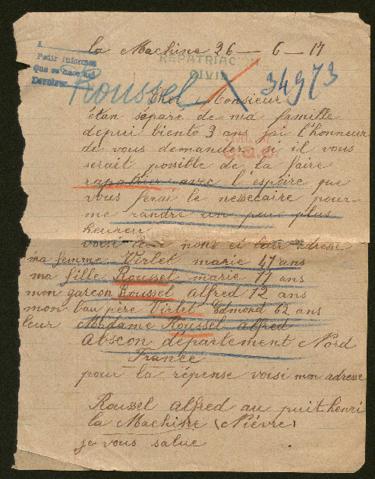 la Machine 26 — 6 — 17
REPATRIAC
CIVIL
Pedir informes
que se hace
Roussel
34973
Monsieur
étan séparé de ma famille
depui biento 3 ans j'ai l'honneur
de vous demander si il vous
serait possible de la faire
rapatrier avec l'espoire que
vous ferai le nessecaire pour
me randre un peu plus
heureux
voici les noms et leur adresse
ma femme Virlet marie 47 ans
ma fille Roussel marie 17 ans
mon garcon Roussel alfred 12 ans
mon bau père Virlet Edmond 62 ans
leur Madame Roussel alfred
Abscon département Nord
France
pour la répense voisi mon adresse
Roussel alfred au puit henri
la Machine (Nièvre)
je vous salue